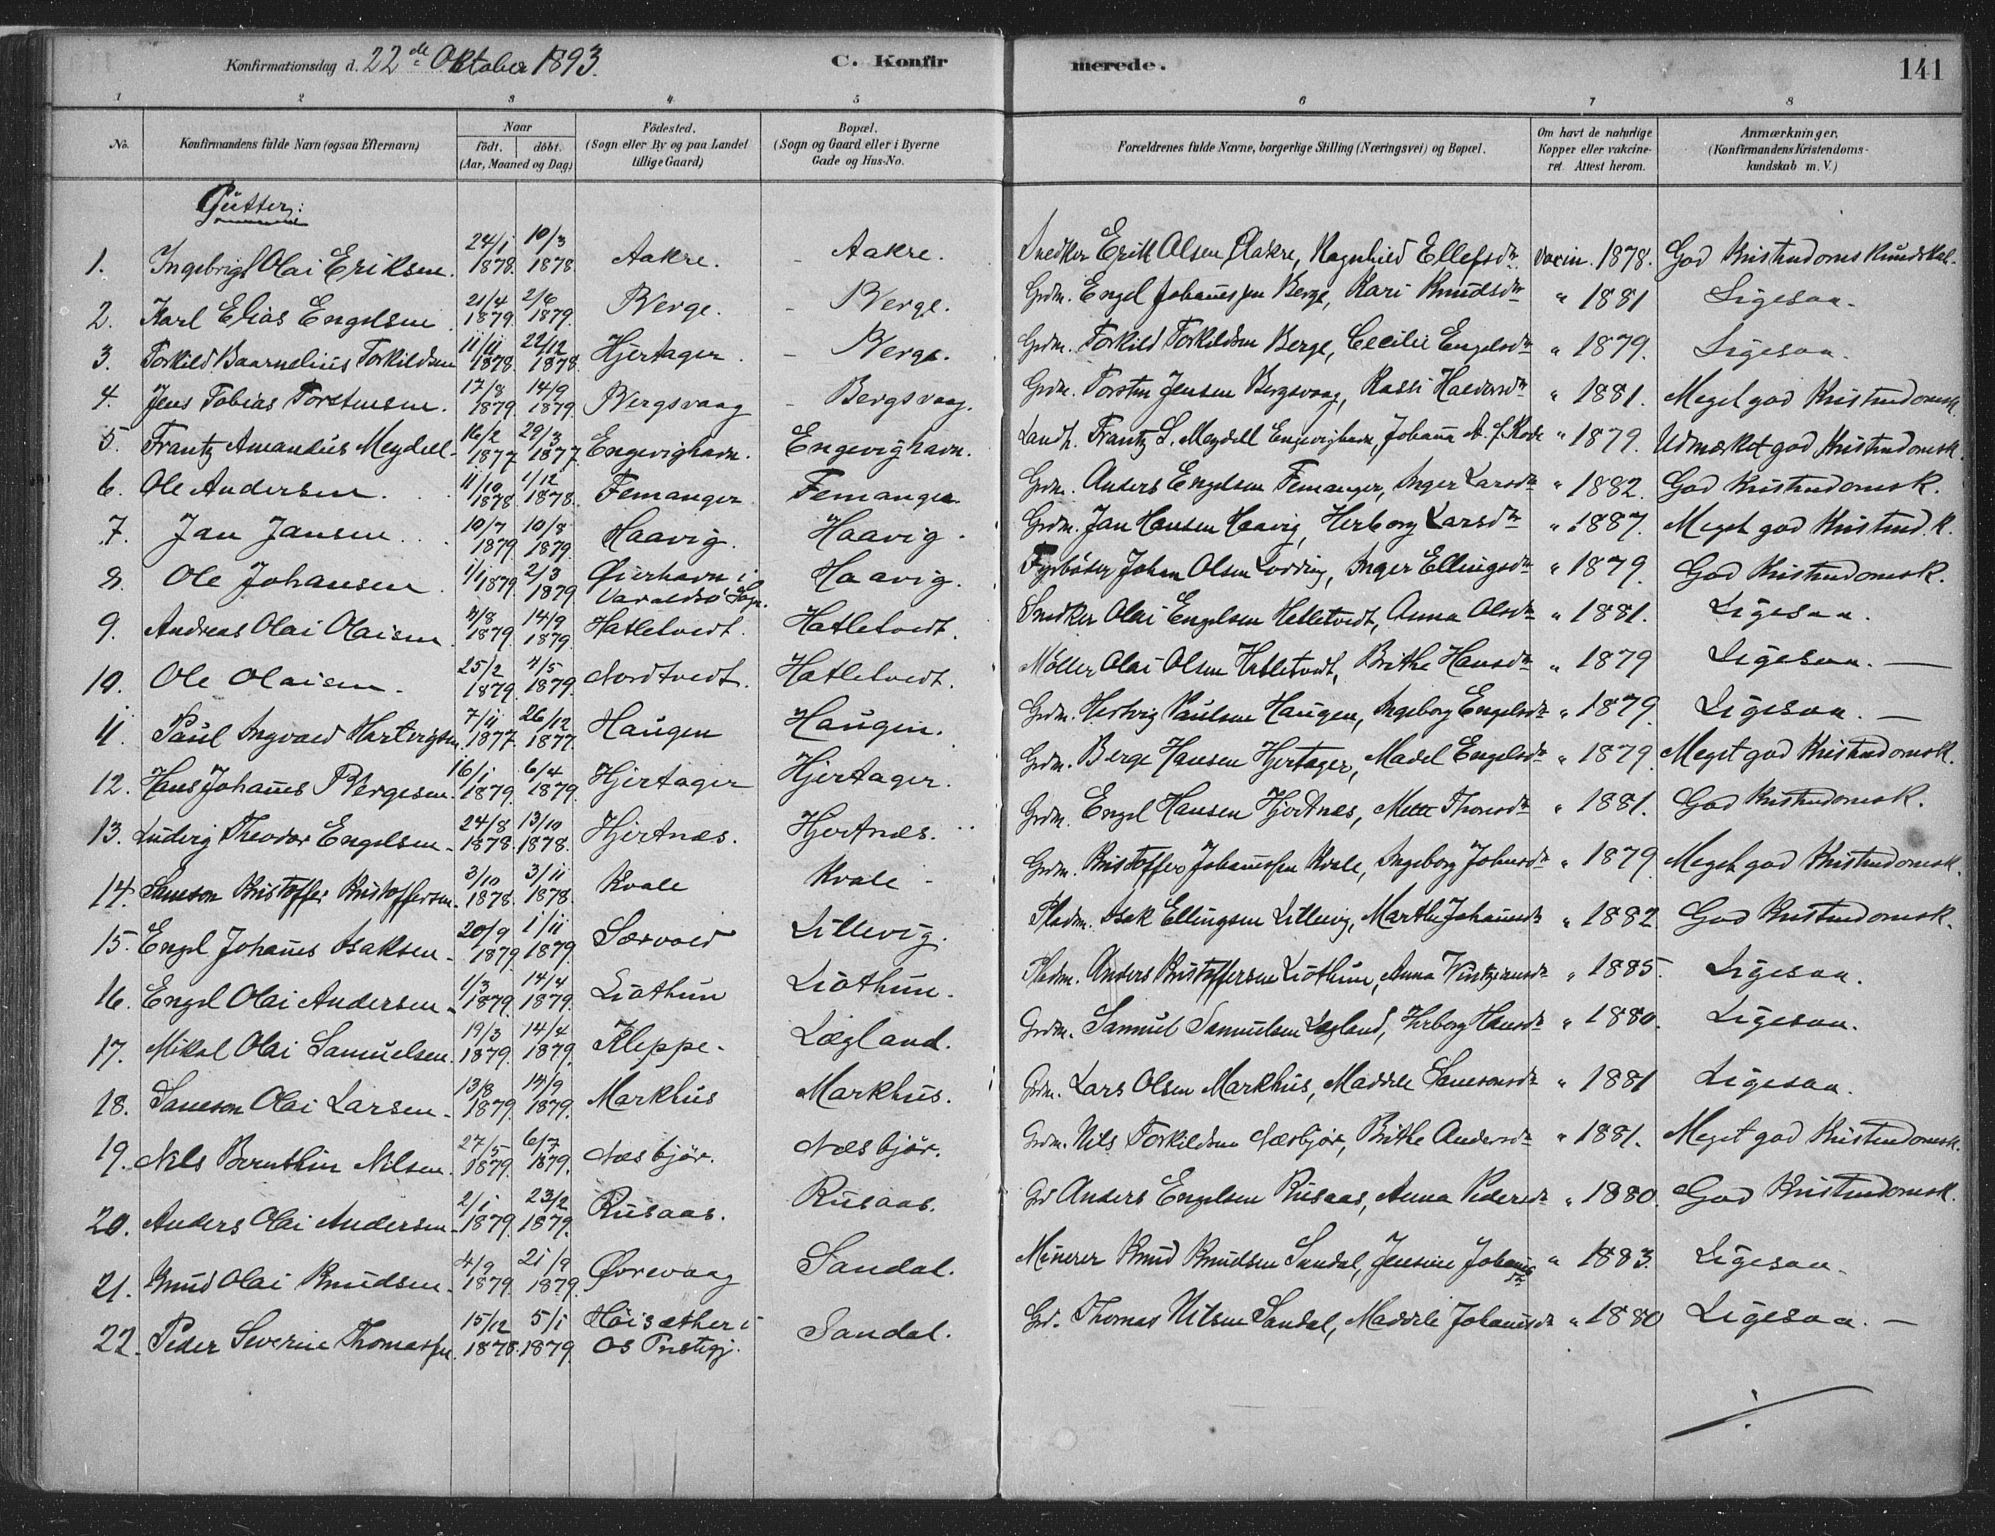 Konfirmationsdag d. 22de Oktober 1893. C. Konfirmerede. 141
1 2 3 4 5 6 7 8
No. Konfirmandens fulde Navn (ogsaa Efternavn) Naar födt. döbt. (Aar, Maaned og Dag) Födested. (Sogn eller By og paa Landet tillige Gaard) Bopæl. (Sogn og Gaard eller i Byerne Gade og Hus-No. Forældrenes fulde Navne, borgerlige Stilling (Næringsvei) og Bopæl. Om havt de naturlige Kopper eller vakcineret. Attest herom. Anmærkninger. (Konfirmandens Kristendomskundskab m. V.)
Gutter:
1. Ingebrigt Olai Eriksen. 24/1 1878. 10/3 1878. Aakre. - Aakre. Snedker Erik Olsen Aakre, Ragnhild Ellefsdtr vaxin. 1878. God Kristendomskundskab.
2. Karl Elias Engelsen. 21/4 1879. 2/6 1879. Berge. - Berge. Grdm. Engel Johannessen Berge, Kari Knudsdtr " 1881 Ligesaa.
3. Torkild Baarnelius Torkildsen 11/11 1878. 22/12 1878. Hjertager. - Berge. Grdm. Torkild Torkildsen Berge, Cecilie Engelsdtr " 1879. Ligesaa.
4. Jens Tobias Torstensen. 17/8 1879. 14/9 1879. Bergsvaag - Bergsvaag. Grdm. Torsten Jensen Bergsvaag, Rassi Haldorsdtr " 1881. Meget god Kristendomsk.
5. Frantz Amandus Meydell. 16/2 1877 29/3 1877. Engevighavn. Engevighavn. Landh. Frantz L. Meydell Engevighavn, Johanna A. f. Kode " 1879. Udmærket god Kristendomsk.
6. Ole Andersen. 11/10 1878 1/12 1878. Femanger Femanger Grdm. Anders Engelsen Femanger, Inger Larsdtr " 1882. God Kristendomsk.
7. Jan Jansen. 10/7 1879 10/8 1879. Haavig. Haavig. Grdm. Jan Hansen Haavig, Herborg Larsdtr " 1887. Meget god Kristend.k.
8. Ole Johansen. 1/1 1879. 2/3 1879 Øierhavn i Varaldsö Sogn. Haavig. Fyrbøter Johan Olsen, Inger Ellingsdtr " 1879. God Kristendomsk.
9. Andreas Olai Olaisen 7/8 1879. 14/9 1879. Hatletvedt. Hatletvedt. Snedker Olai Engelsen Hatletvedt, Anna Olsdtr " 1881. Ligesaa.
10. Ole Olaisen. 25/2 1879. 4/5 1879. Nordtvedt. Hatletvedt. Møller Olai Olsen Hatletvedt, Brithe Hansdtr " 1879 Ligesaa. —
11. Paul Ingvald Hartvigsen. 7/11 1877. 26/12 1877. Haugen Haugen. Grdm. Hertvig Paulsen Haugen, Ingeborg Engelsdtr " 1879. Ligesaa. —
12. Hans Johannes Bergesen. 16/1 1879. 6/4 1879. Hjertager Hjertager. Grdm. Berge Hansen Hjertager, Madel Engelsdtr " 1879. Meget god Kristendomsk.
13. Ludvig Theodor Engelsen. 24/8 1878. 13/10 1878. Hjertnæs. Hjertnæs. Grdm. Engel Hansen Hjertnæs, Mette Thomsdtr " 1881. God Kristendomsk.
14. Samson Kristoffer Kristoffersen. 3/10 1878. 3/11 1878. Kvale Kvale. Grdm. Kristoffer Johannessen Kvale, Ingeborg Johnsdtr " 1879. Meget god Kristendomsk.
15. Engel Johannes Isaksen. 20/9 1879. 1/11 1879. Særvold Lillevig. Pladm. Isak Ellingsen Lillevig, Marthe Johannesdtr " 1882 God Kristendomsk.
16. Engel Olai Andersen. 1/3 1879. 14/4 1879. Liothun Liothun. Pladm. Anders Kristoffersen Liothun, Anna " 1885. Ligesaa.
17. Mikal Olai Samuelsen. 19/3 1879. 14/4 1879. Kleppe. Lægland. Grdm. Samuel Samuelsen Lægland, Herborg Hansdtr " 1880. Ligesaa.
18. Samson Olai Larsen. 13/8 1879. 14/9 1879. Markhus Markhus. Grdm. Lars Olsen Markhus, Maddele Samsonsdtr " 1881 Ligesaa.
19. Nils Bernthin Nilsen. 27/5 1879. 6/7 1879. Næsbjør. Næsbjør. Grdm. Nils Torkildsen Næsbjør, Brithe Andersdtr " 1881. Meget god Kristendomsk.
20. Anders Olai Andersen. 2/1 1879. 23/2 1879. Rusaas. Rusaas. Grd Anders Engelsen Rusaas, Anna Pedersdtr " 1880. God Kristendomsk.
21. Knud Olai Knudsen. 4/9 1879. 21/9 1879. Øvrevaag Sandal. Minerer Knud Knudsen Sandal, Jensine Johannesdtr " 1883. Ligesaa.
22. Peder Severin Thomassen. 15/12 1878. 5/1 1879. Høisæther i Os Prestegj. Sandal. Grd. Thomas Nilsen Sandal, Maddele Johannesdtr " 1880 Ligesaa. —